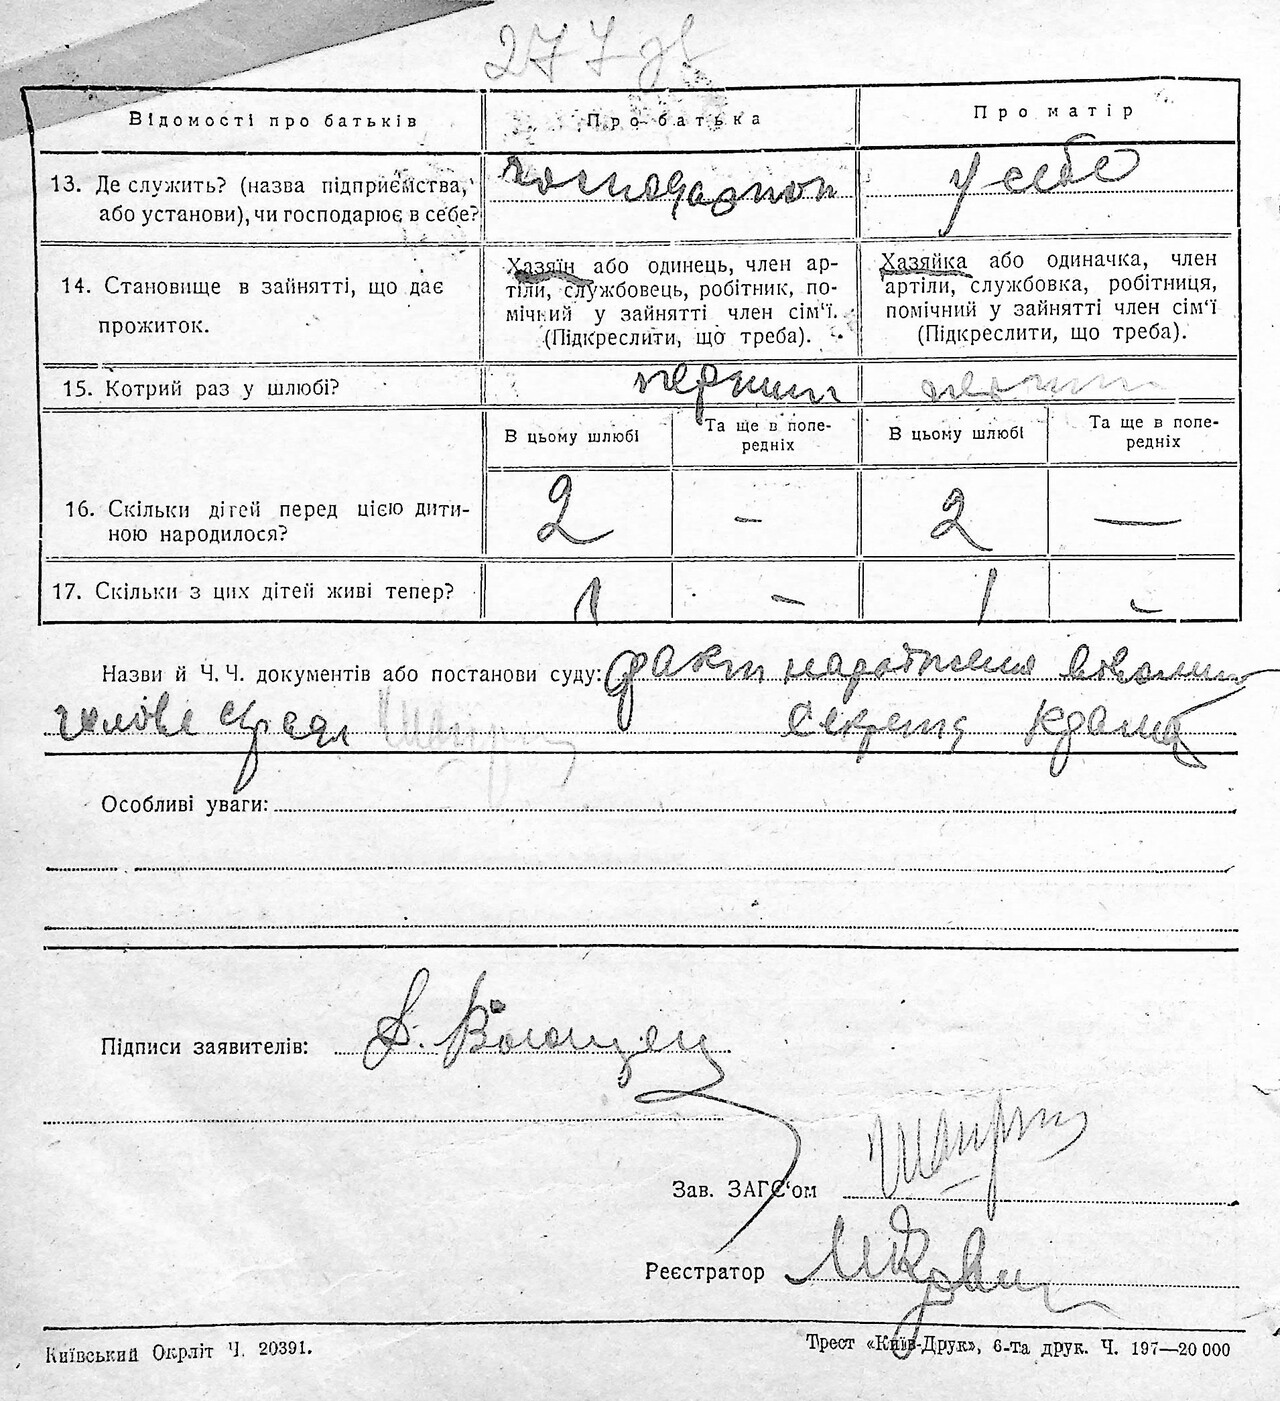 277 зв
Відомості про батьків Про батька Про матір
13. Де служить? (назва підприємства, або установи), чи господарює в себе? у себе
14. Становище в зайнятті, що дає прожиток.
Хазяїн або одинець, член ар-
тіли, службовець, робітник, по-
мічний у зайнятті член сім‘ї.
(Підкреслити, що треба).
Хазяйка або одиначка, член
артіли, службовка, робітниця,
помічний у зайнятті член сім‘ї
(Підкреслити, що треба).
15. Котрий раз у шлюбі? перший
В цьому шлюбі
Та ще в попе-
редніх
В цьому шлюбі
Та ще в попе-
редніх
16. Скільки дітей перед цією дити-
ною народилося? 2 - 2 —
17. Скільки з цих дітей живі тепер? 1 - 1 -
Назви й Ч. Ч. документів або постанови суду: факт народження
голова
Особливі уваги:
Підписи заявителів:
Зав. ЗАГС‘ом
Реєстратор
Київський Окрліт Ч. 20391. Трест «Київ-Друк», 6-та друк. Ч. 197—20 000